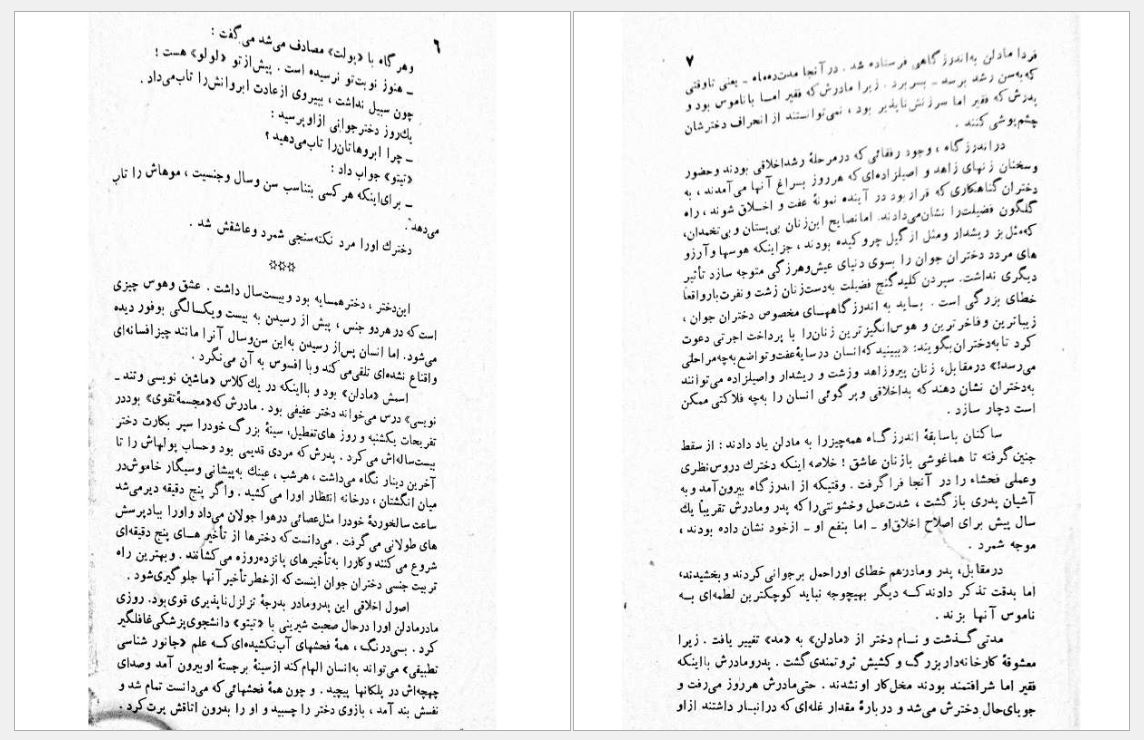 ٦
وهر گاه با «پولت» مصادف می‌شد می‌گفت :
ــ هنوز نوبت‌تو نرسیده است . پیش‌از تو «لولو» هست !
چون سبیل نداشت ، بپیروی ازعادت ابروانش‌را تاب‌می‌داد .
یك‌روز دخترجوانی ازاو پرسید :
ــ چرا ابروهاتان‌را تاب‌می‌دهید ؟
«تیتو» جواب داد :
ــ برای‌اینکه هر کسی بتناسب سن وسال وجنسیت ، موهاش را تاب
می‌دهد .
دخترك اورا مرد نکته‌سنجی شمرد وعاشقش شد .
✩✩✩
این‌دختر ، دخترهمسایه بود وبیست‌سال داشت . عشق وهوس چیزی
است‌که در هردو جنس ، پیش از رسیدن به بیست ویکسالگی بوفور دیده
می‌شود. اما انسان پس‌از رسیدن به‌این سن‌وسال آنرا مانند چیزافسانه‌ای
واقناع نشده‌ای تلقی‌می‌کند وبا افسوس به آن می‌نگرد .
اسمش «مادلن» بود و بااینکه در یك‌کلاس «ماشین نویسی وتند ــ
نویسی» درس می‌خواند دختر عفیفی بود . مادرش‌که«مجسمهٔ‌تقوی» بوددر
تفریحات یکشنبه و روز های‌تعطیل، سینهٔ بزرگ خودرا سپر بکارت دختر
بیست‌ساله‌اش می‌کرد . پدرش‌که مردی قدیمی بود وحساب پولهاش را تا
آخرین دینار نگاه می‌داشت ، هرشب ، عینك به‌پیشانی وسیگار خاموش‌در
میان انگشتان ، درخانه انتظار اورا می‌کشید . واگر پنج دقیقه دیرمی‌شد
ساعت سالخوردهٔ خودرا مثل‌عصائی درهوا جولان می‌داد واورا ببادپرسش
های طولانی می‌گرفت . می‌دانست‌که دخترها از تأخیر هــای پنج دقیقه‌ای
شروع می‌کنند وکاررا به‌تأخیرهای پانزده‌روزه می‌کشانند . وبهترین راه
تربیت جنسی دختران جوان اینست که ازخطرتأخیر آنها جلو گیری‌شود .
اصول اخلاقی این پدرومادر بدرجهٔ تزلزل‌ناپذیری قوی‌بود. روزی
مادرمادلن اورا درحال صحبت شیرینی با «تیتو» دانشجوی‌پزشکی‌غافلگیر
کرد . بیـدرنگ ، همهٔ فحشهای آب‌نکشیده‌ای‌کــه علم «جانور شناسی
تطبیقی» می‌تواند به‌انسان الهام‌کند ازسینهٔ برجستهٔ اوبیرون آمد وصدای
چهچه‌اش در پلکانها پیچید . و چون همهٔ فحشهائی که می‌دانست تمام شد و
نفسش بند آمد ، بازوی دختر را چسبید و او را بدرون اتاقش پرت‌کرد .
٧
فردا مادلن به‌اندرزگاهی فرستاده شد . درآنجا مدت‌ده‌ماه ــ یعنی تاوقتی
که‌به‌سن رشد برسد ــ بسر برد . زیرا مادرش‌که فقیر امــا با‌ناموس بود و
پدرش‌که فقیر اما سرزنش‌ناپذیر بود ، نمی‌توانستند از انحراف دخترشان
چشم‌پوشی‌کنند .
دراندرزگاه ، وجود رفقائی‌که درمرحلهٔ رشداخلاقی بودند وحضور
وسخنان زنهای زاهد و اصیلزاده‌ای‌که هرروز بسراغ آنها می‌آمدند ، به
دختران گناهکاری‌که قرار بود در آینده نمونهٔ عفت و اخــلاق شوند ، راه
گلگون فضیلت‌را نشان‌می‌دادند. امانصایح این‌زنان بی‌پستان و بی‌تخمدان،
که‌مثل‌بز ریشدار ومثل ازگیل چروکیده بودند ، جزاینکه هوسها وآرزو
های مردد دختران جوان را بسوی دنیای عیش‌وهرزگی متوجه سازد تأثیر
دیگری نداشت. سپردن کلیدگنج فضیلت به‌دست‌زنان زشت ونفرت‌بارواقعا
خطای بزرگی است . بـباید به اندرزگاههــای مخصوص دختران جوان ،
زیباترین وفاخرترین و هوس‌انگیزترین زنان‌را با پرداخت اجرتی دعوت
کرد تا به‌دختران‌بگویند: «ببینیدکه‌انسان درسایهٔ‌عفت‌وتواضع‌به‌چه‌مراحلی
می‌رسد!» درمقابل، زنان پیروزاهد وزشت و ریشدار واصیلزاده می‌توانند
به‌دختران نشان دهندکه بداخلاقی وپرگوئی انسان را به‌چه فلاکتی ممکن
است دچار سازد .
ساکنان باسابقهٔ اندرزگــاه همه‌چیزرا به مادلن یاد دادند : از سقط
جنین‌گرفته تا هماغوشی بازنان عاشق ! خلاصه اینکه دخترك دروس‌نظری
وعملی فحشاء را در آنجا فراگرفت . وقتیکه از اندرزگاه بیرون‌آمد وبه
آشیان پدری بازگشت ، شدت‌عمل وخشونتی‌راکه پدر ومادرش تقریباً یك
سال پیش برای اصلاح اخلاق‌او ــ اما بنفع او ــ ازخود نشان داده بودند ،
موجه شمرد .
درمقابل، پدر ومادرهم خطای اوراحمل برجوانی‌کردند وبخشیدند،
اما بدقت تذکر دادندکــه دیگر بهیچوجه نباید کوچکترین لطمه‌ای بــه
ناموس آنها بزند .
مدتی گــذشت و نــام دختر از «مادلن» به «مد» تغییر یافت . زیرا
معشوقهٔ کارخانه‌دار بزرگ و کشیش ثروتمندی‌گشت . پدرومادرش بااینکه
فقیر اما شرافتمند بودند مخل‌کار اونشدند . حتی‌مادرش هرروز می‌رفت و
جویای‌حال دخترش می‌شد و دربارهٔ مقدار غله‌ای که درانبــار داشتند ازاو